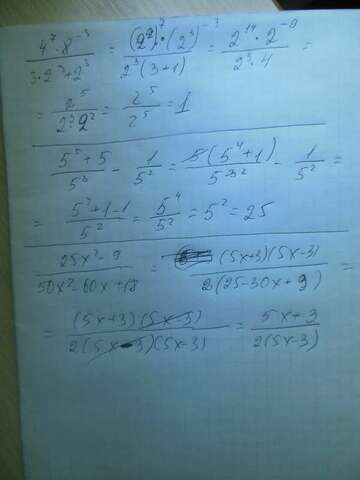 4⁷·8⁻³/(3·2³+2³) = (2²)⁷·(2³)⁻³/(2³(3+1)) = 2¹⁴·2⁻⁹/(2³·4) =
= 2⁵/(2³2²) = 2⁵/2⁵ = 1
(5⁵+5)/5³ - 1/5² = 5(5⁴+1)/5³ - 1/5² =
= (5⁴+1-1)/5² = 5⁴/5² = 5² = 25
(25x²-9)/(50x²-60x+18) = (5x+3)(5x-3)/(2(25-30x+9)) =
= (5x+3)(5x-3)/(2(5x-3)(5x-3)) = (5x+3)/(2(5x-3))